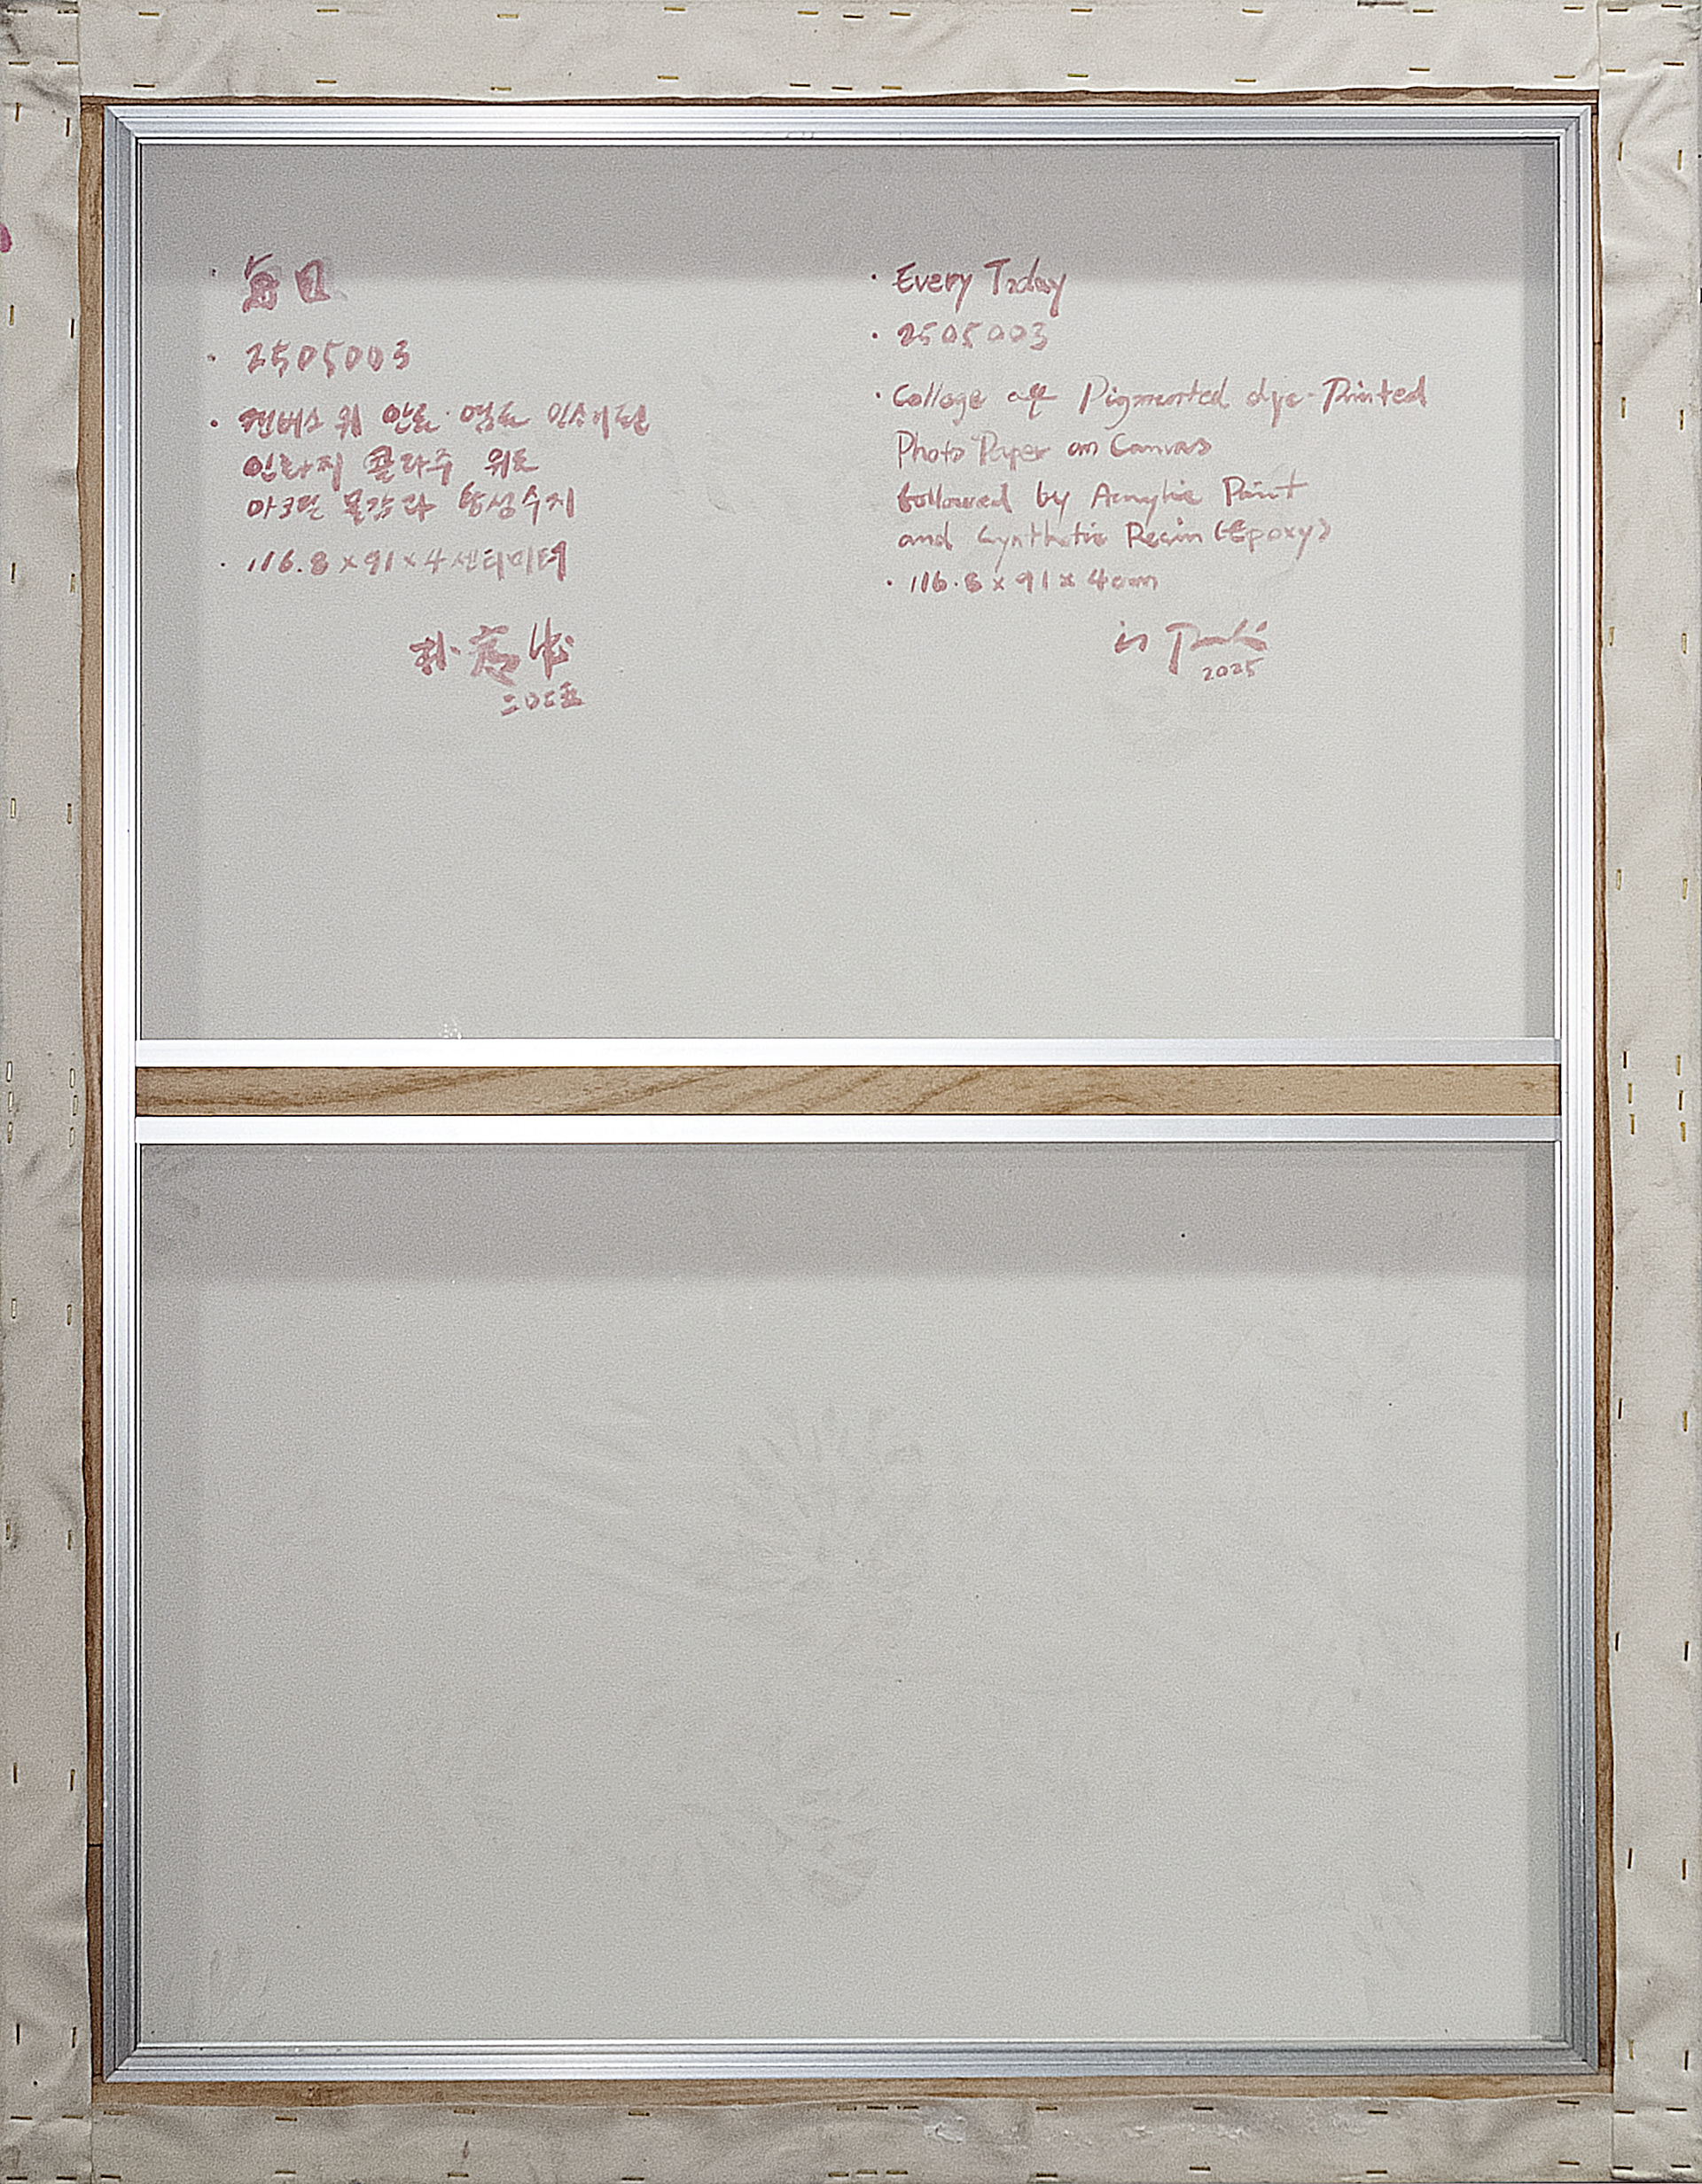 · 每日
· 2505003
· 캔버스 위 안료·염료 인쇄된
인화지 콜라주 위로
아크릴 물감과 합성수지
· 116.8 x 91 x 4 센티미터
朴
二〇二五
· Every Today
· 2505003
· Collage of Pigmented dye-Printed
Photo Paper on Canvas
followed by Acrylic Paint
and Synthetic Resin (Epoxy)
· 116.8 x 91 x 4cm
Park
2025